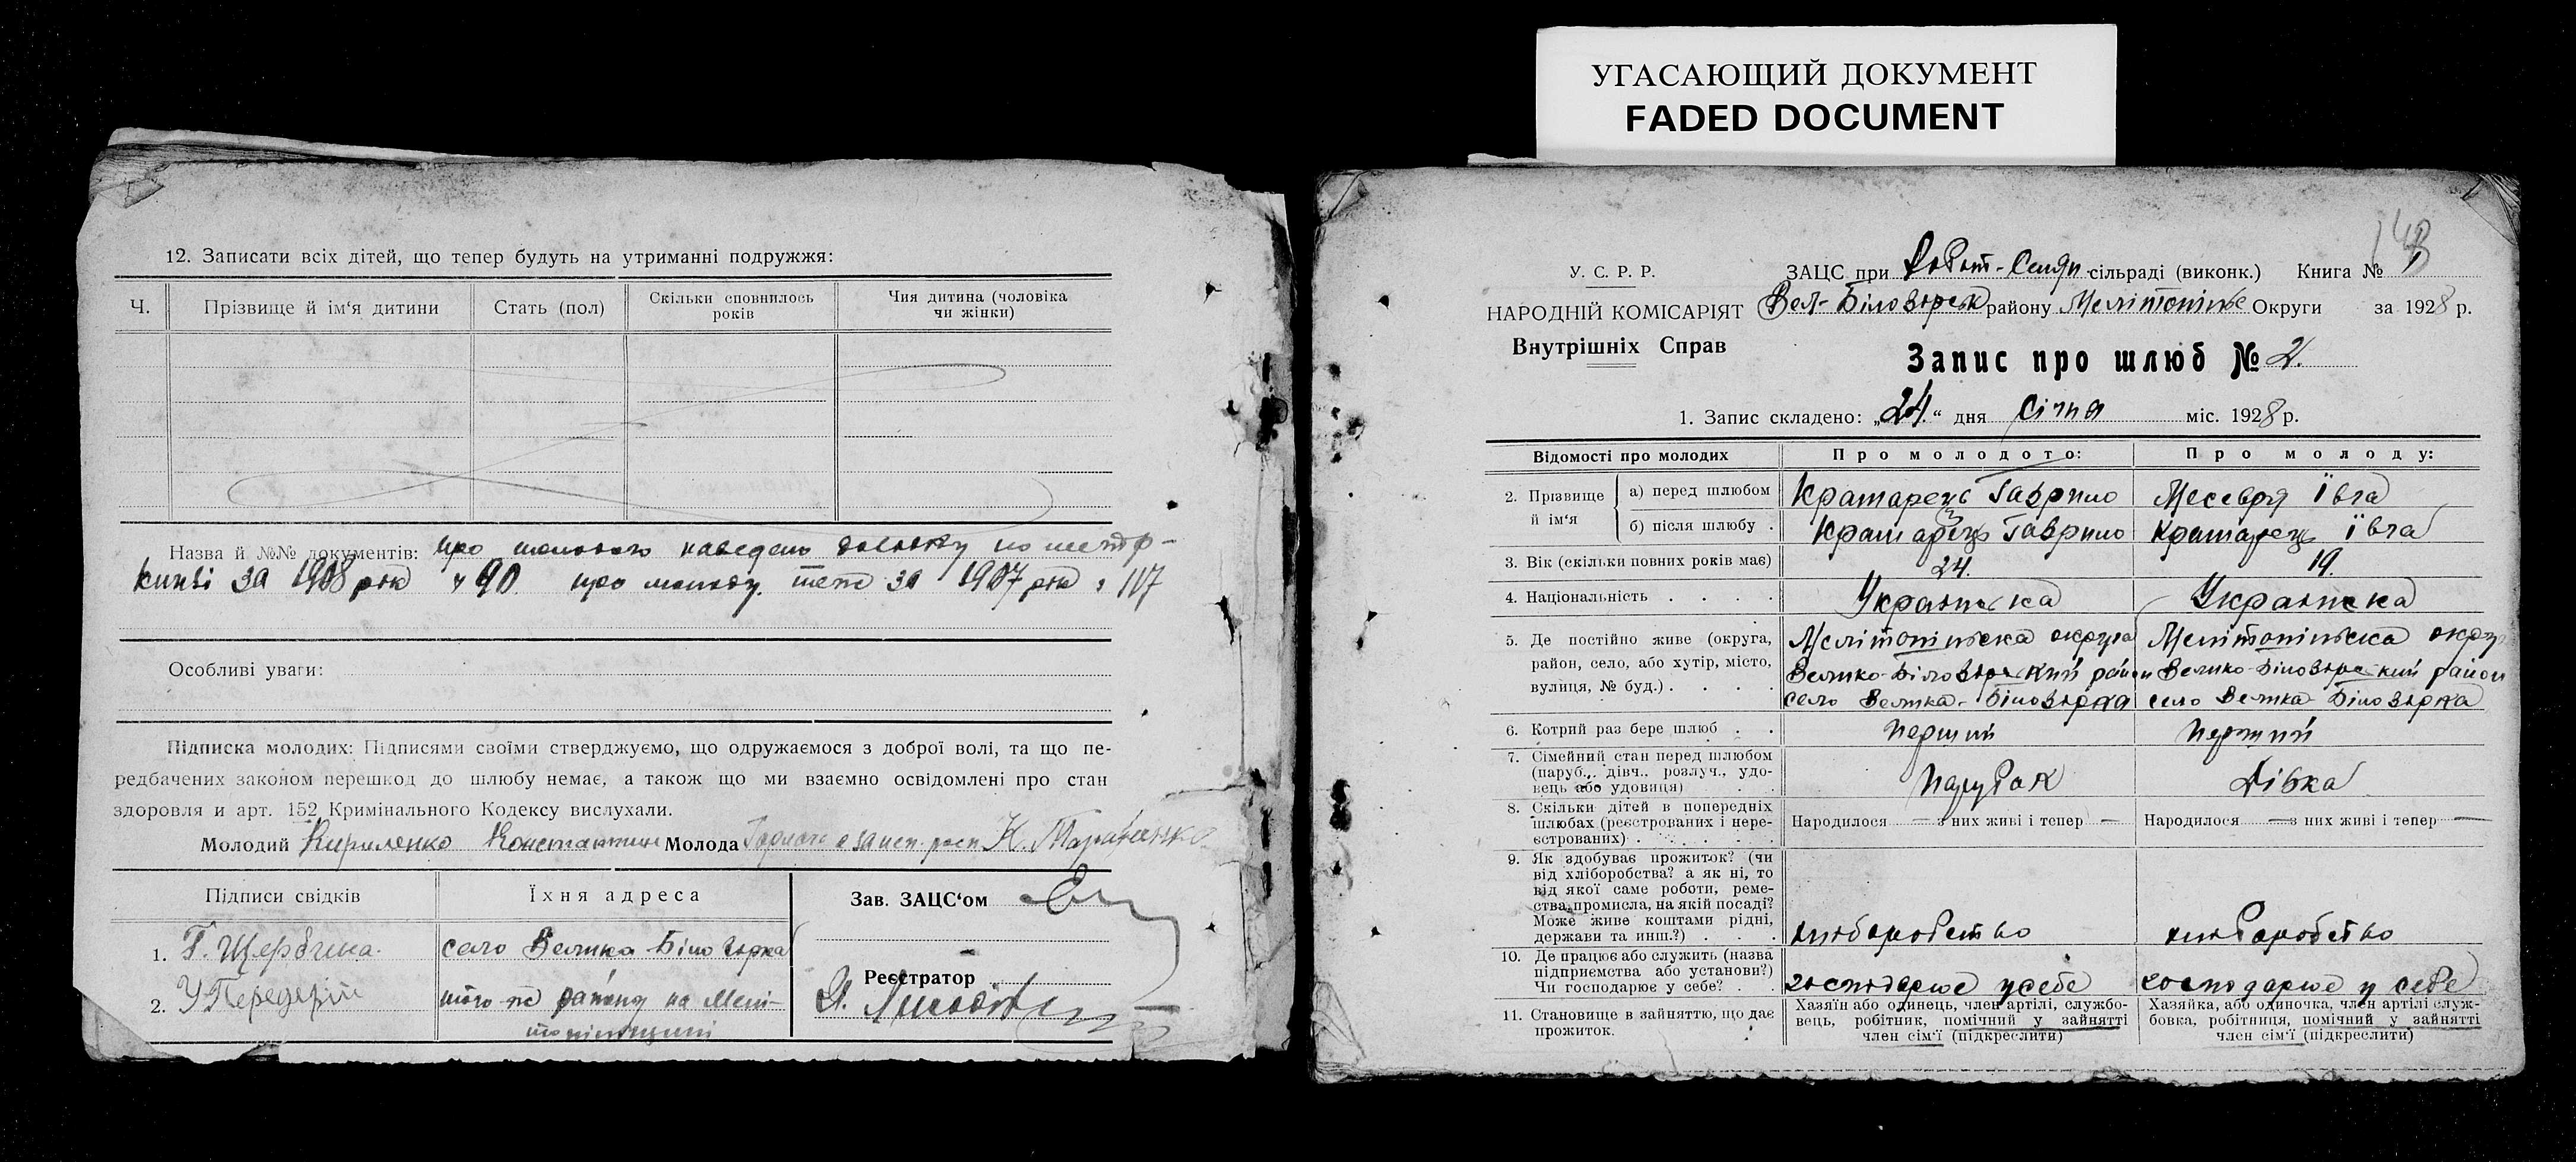 УГАСАЮЩИЙ ДОКУМЕНТ
FADED DOCUMENT
12. Записати всіх дітей, що тепер будуть на утриманні подружжя:
Ч.
Прізвище й ім‘я дитини
Стать (пол)
Скільки сповнилось
років
Чия дитина (чоловіка
чи жінки)
Назва й №№ документів: про молодого наведено довідку по метр-
книзі за 1908 рік № 90 про молоду за 1907 рік № 117
Особливі уваги:
Підписка молодих: Підписями своїми стверджуємо, що одружаємося з доброї волі, та що пе-
редбачених законом перешкод до шлюбу немає, а також що ми взаємно освідомлені про стан
здоровля и арт. 152 Кримінального Кодексу вислухали.
Молодий Кириленко Константин Молода
Підписи свідків
Їхня адреса
1. Г. Щербина
село Велика Білозірка
2. У Передерій
того-ж району на Мелі-
топільщині
Зав. ЗАЦС‘ом
Реєстратор
У. С. Р. Р.
НАРОДНІЙ КОМІСАРІЯТ
Внутрішніх Справ
ЗАЦС при Робіт-Селян сільраді (виконк.) Книга №
Вел-Білозірск району Мелітопільс Округи за 1928 р.
Запис про шлюб № 2.
1. Запис складено: „24“ дня січня міс. 1928 р.
Відомості про молодих
Про молодого:
Про молоду:
2. Прізвище
й ім‘я
а) перед шлюбом
Крамарець Гаврило
Ївга
б) після шлюбу
Крамарець Гаврило
Крамарець Ївга
3. Вік (скільки повних років має)
24.
19.
4. Національність
Українська
Українська
5. Де постійно живе (округа,
район, село, або хутір, місто,
вулиця, № буд.)
Мелітопільска округа
Велико-Білозірский район
село Велика-Білозірка
Мелітопільска округ
Велико-Білозірский район
село Велика Білозірка
6. Котрий раз бере шлюб
перший
перший
7. Сімейний стан перед шлюбом
(паруб., дівч., розлуч., удо-
вець або удовиця)
парубок
дівка
8. Скільки дітей в попередніх
шлюбах (реєстрованих і нере-
єстрованих)
Народилося — з них живі і тепер —
Народилося — з них живі і тепер —
9. Як здобуває прожиток? (чи
від хліборобства? а як ні, то
від якої саме роботи, реме-
ства, промисла, на якій посаді?
Може живе коштами рідні,
держави та инш.?)
хліборобство
хліборобство
10. Де працює або служить (назва
підприємства або установи?)
Чи господарює у себе?
господарює у себе
господарює у себе
11. Становище в зайняттю, що дає
прожиток.
Хазяїн або одинець, член артілі, службо-
вець, робітник, помічний у зайнятті
член сім‘ї (підкреслити)
Хазяйка, або одиночка, член артілі служ-
бовка, робітниця, помічний у зайнятті
член сім‘ї (підкреслити)